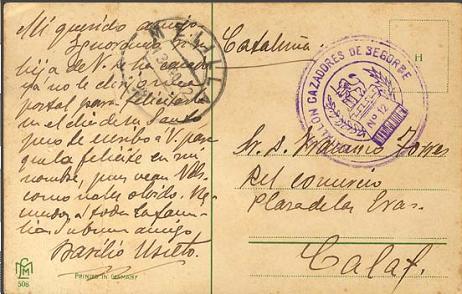 Mi querido amigo
Ignorando si
hija de V. se ha casado
ya no le dirijo la
postal para felicitarle
en el día de su Santo
pues le escribo a V. para
que la felicite en mi
nombre, pues vean Vds.
como no les olvido. Re-
cuerdos a toda la fami-
lia su buen amigo
Basilio Usieto.
MELILLA
Cataluña
BATALLON CAZADORES DE SEGORBE
Nº 12
H
Sr. D. Torres
Del comercio
Plaza de las Eras.
Calaf.
506
PRINTED IN GERMANY